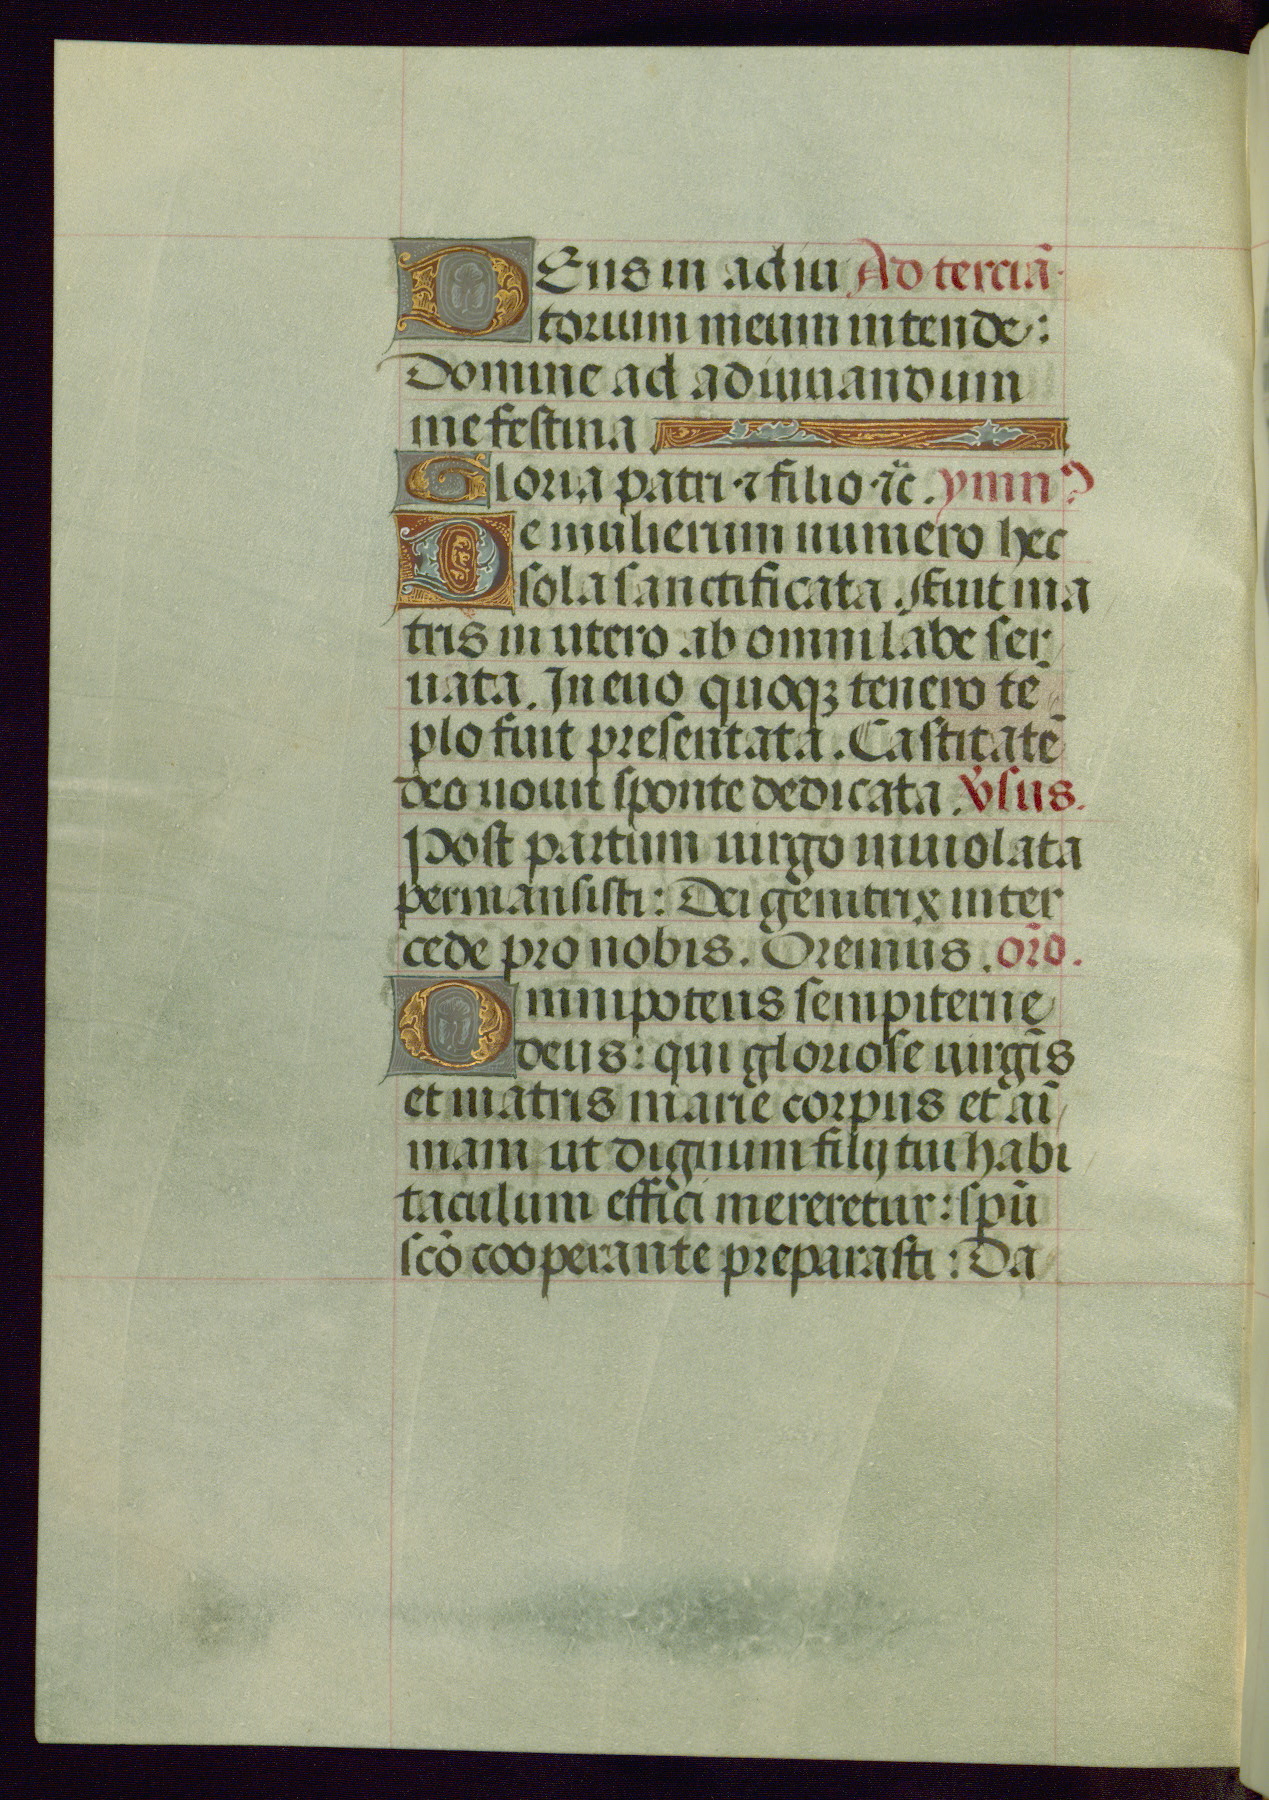 DEus in adiu Ad terciā.
torium meum intende:
Domine ad adiuuandum
me festina
Gloria patri ⁊ filio ⁊c̄. ymn⁹
De mulierum numero hec
sola sanctificata. Fuit ma
tris in utero ab omni labe ser
uata. In euo quoqꝫ tenero tē
plo fuit presentata. Castitatē
deo uouit sponte dedicata. v̄sus.
Post partum uirgo inuiolata
permansisti: Dei genitrix inter
cede pro nobis. Oremus. or̄o.
Omnipotens sempiterne
deus: qui gloriose uirgīs
et matris marie corpus et aī
mam ut dignum filij tui habi
taculum effici mereretur: spū
scō cooperante preparasti: Da